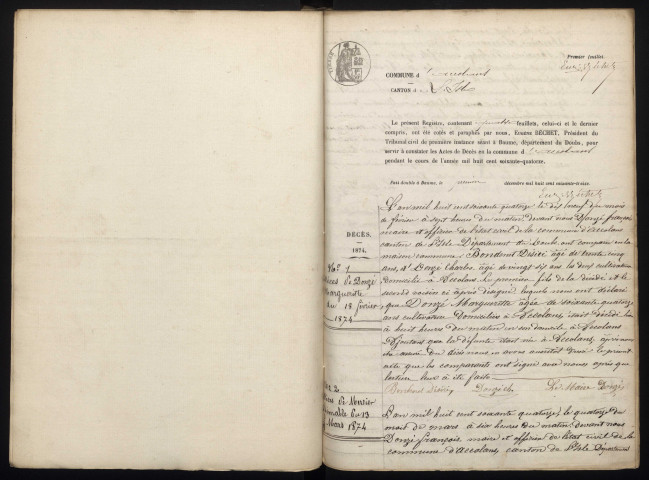 Premier feuillet.
COMMUNE d'Accolans
CANTON de L'Isle
Le présent Registre, contenant feuillets, celui-ci et le dernier
compris, ont été cotés et paraphés par nous, Eugène BÉCHET, Président du
Tribunal civil de première instance séant à Baume, département du Doubs, pour
servir à constater les Actes de Décès en la commune d'Accolans
pendant le cours de l'année mil huit cent soixante-quatorze.
Fait double à Baume, le premier décembre mil huit cent soixante-treize.
DÉCÈS.
1874.
N° 1
Décès de Donzé
Marguerite
du 18 février
1874
L'an mil huit cent soixante quatorze le dix neuf du mois
de février à sept heures du matin devant nous Donzé françois
maire et officier de l'état civil de la commune d'Accolans
canton de l'Isle Département du Doubs, ont comparu en la
maison commune Bondenet Désiré âgé de trente cinq
ans, et Donzé Charles âgé de vingt six ans les deux cultivateurs
domiciliés à Accolans le premier fils de la défunte et le
second voisin ci après désigné lesquels nous ont déclaré
que Donzé Marguerite âgée de soixante quatorze
ans cultivatrice domiciliée à Accolans, était décédée hier
à huit heures du matin en son domicile à Accolans
Ajoutons que la défunte était née à Accolans, après nous
être assuré du décès nous en avons aussitôt dressé le présent
acte que les comparants ont signé avec nous après que
lecture leur a été faite
Bondenet Désiré Donzé Ch. Le Maire Donzé
N° 2
Décès de Mercier
du 13
Mars 1874
L'an mil huit cent soixante quatorze, le quatorze du
mois de mars à six heures du matin devant nous
Donzé françois, maire et officier de l'état civil de la
commune d'Accolans canton de l'Isle Département